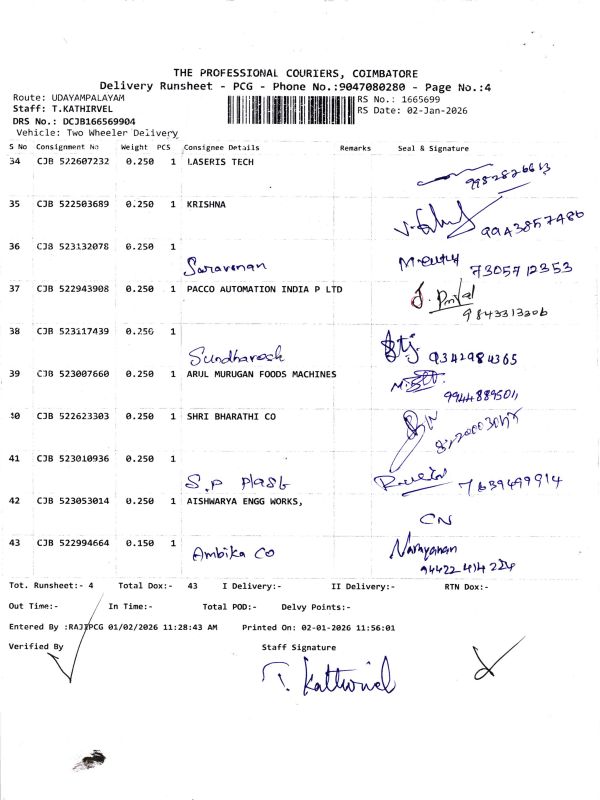 THE PROFESSIONAL COURIERS, COIMBATORE
Delivery Runsheet - PCG - Phone No.:9047080280 - Page No.:4
Route: UDAYAMPALAYAM
RS No.: 1665699
Staff: T.KATHIRVEL
RS Date: 02-Jan-2026
DRS No.: DCJB166569904
Vehicle: Two Wheeler Delivery
S No Consignment No Weight PCS Consignee Details Remarks Seal & Signature
34 CJB 522607232 0.250 1 LASERIS TECH
9952826613
35 CJB 522503689 0.250 1 KRISHNA
9943857486
36 CJB 523132078 0.250 1
Saravanan 7305712353
37 CJB 522943908 0.250 1 PACCO AUTOMATION INDIA P LTD
9843313306
38 CJB 523117439 0.250 1
Sundharesh 9342984365
39 CJB 523007660 0.250 1 ARUL MURUGAN FOODS MACHINES
9944889501
40 CJB 522623303 0.250 1 SHRI BHARATHI CO
41 CJB 523010936 0.250 1
S.P Plast 7639499914
42 CJB 523053014 0.250 1 AISHWARYA ENGG WORKS,
CN
43 CJB 522994664 0.150 1
Ambika Co Narayanan
94422 414 224
Tot. Runsheet:- 4 Total Dox:- 43 I Delivery:- II Delivery:- RTN Dox:-
Out Time:- In Time:- Total POD:- Delvy Points:-
Entered By :RAJIPCG 01/02/2026 11:28:43 AM Printed On: 02-01-2026 11:56:01
Verified By Staff Signature
T. Kathirvel